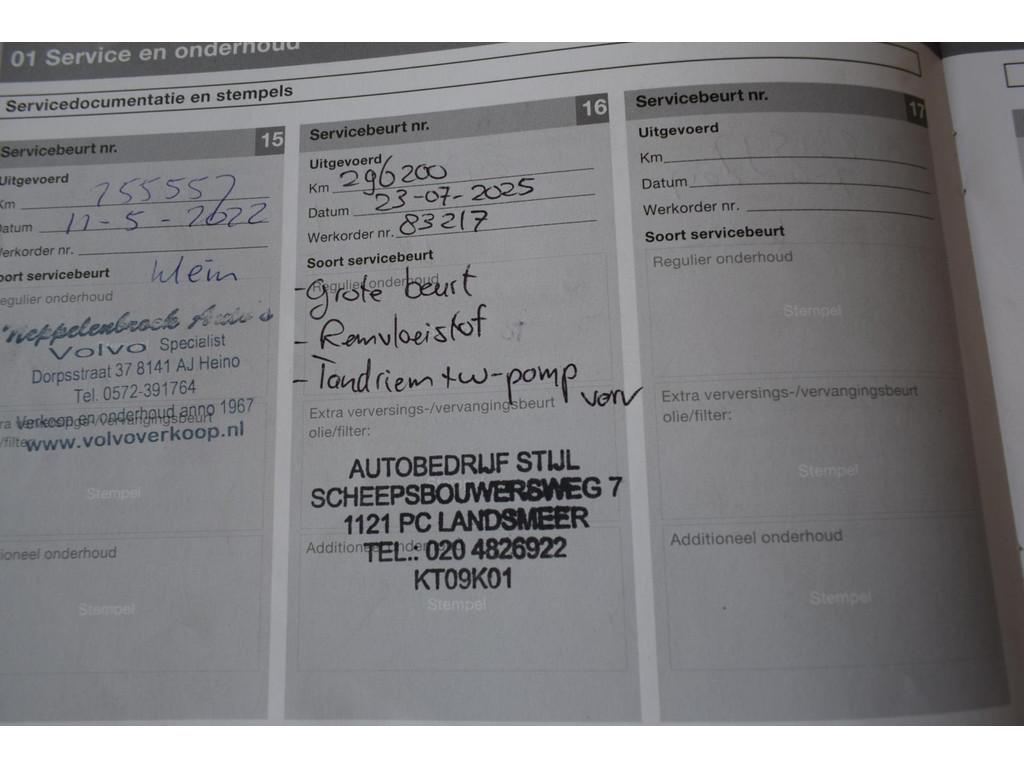 01 Service en onderhoud
Servicedocumentatie en stempels
Servicebeurt nr. 15
Uitgevoerd
Km 255557
Datum 11-5-2022
Werkorder nr.
Soort servicebeurt klein
Regulier onderhoud
Specialist
Volvo
Dorpsstraat 37 8141 AJ Heino
Tel. 0572-391764
Verkoop en onderhoud anno 1967
Extra verversings-/vervangingsbeurt
olie/filter:
www.volvoverkoop.nl
Stempel
Additioneel onderhoud
Stempel
Servicebeurt nr. 16
Uitgevoerd
Km 296200
Datum 23-07-2025
Werkorder nr. 83217
Soort servicebeurt
Regulier onderhoud
- Grote beurt
- Remvloeistof
- Tandriem + w-pomp
vorv
Extra verversings-/vervangingsbeurt
olie/filter:
AUTOBEDRIJF STIJL
SCHEEPSBOUWERSWEG 7
1121 PC LANDSMEER
Additioneel onderhoud
TEL.: 020 4826922
KT09K01
Stempel
Servicebeurt nr. 17
Uitgevoerd
Km
Datum
Werkorder nr.
Soort servicebeurt
Regulier onderhoud
Stempel
Extra verversings-/vervangingsbeurt
olie/filter:
Stempel
Additioneel onderhoud
Stempel